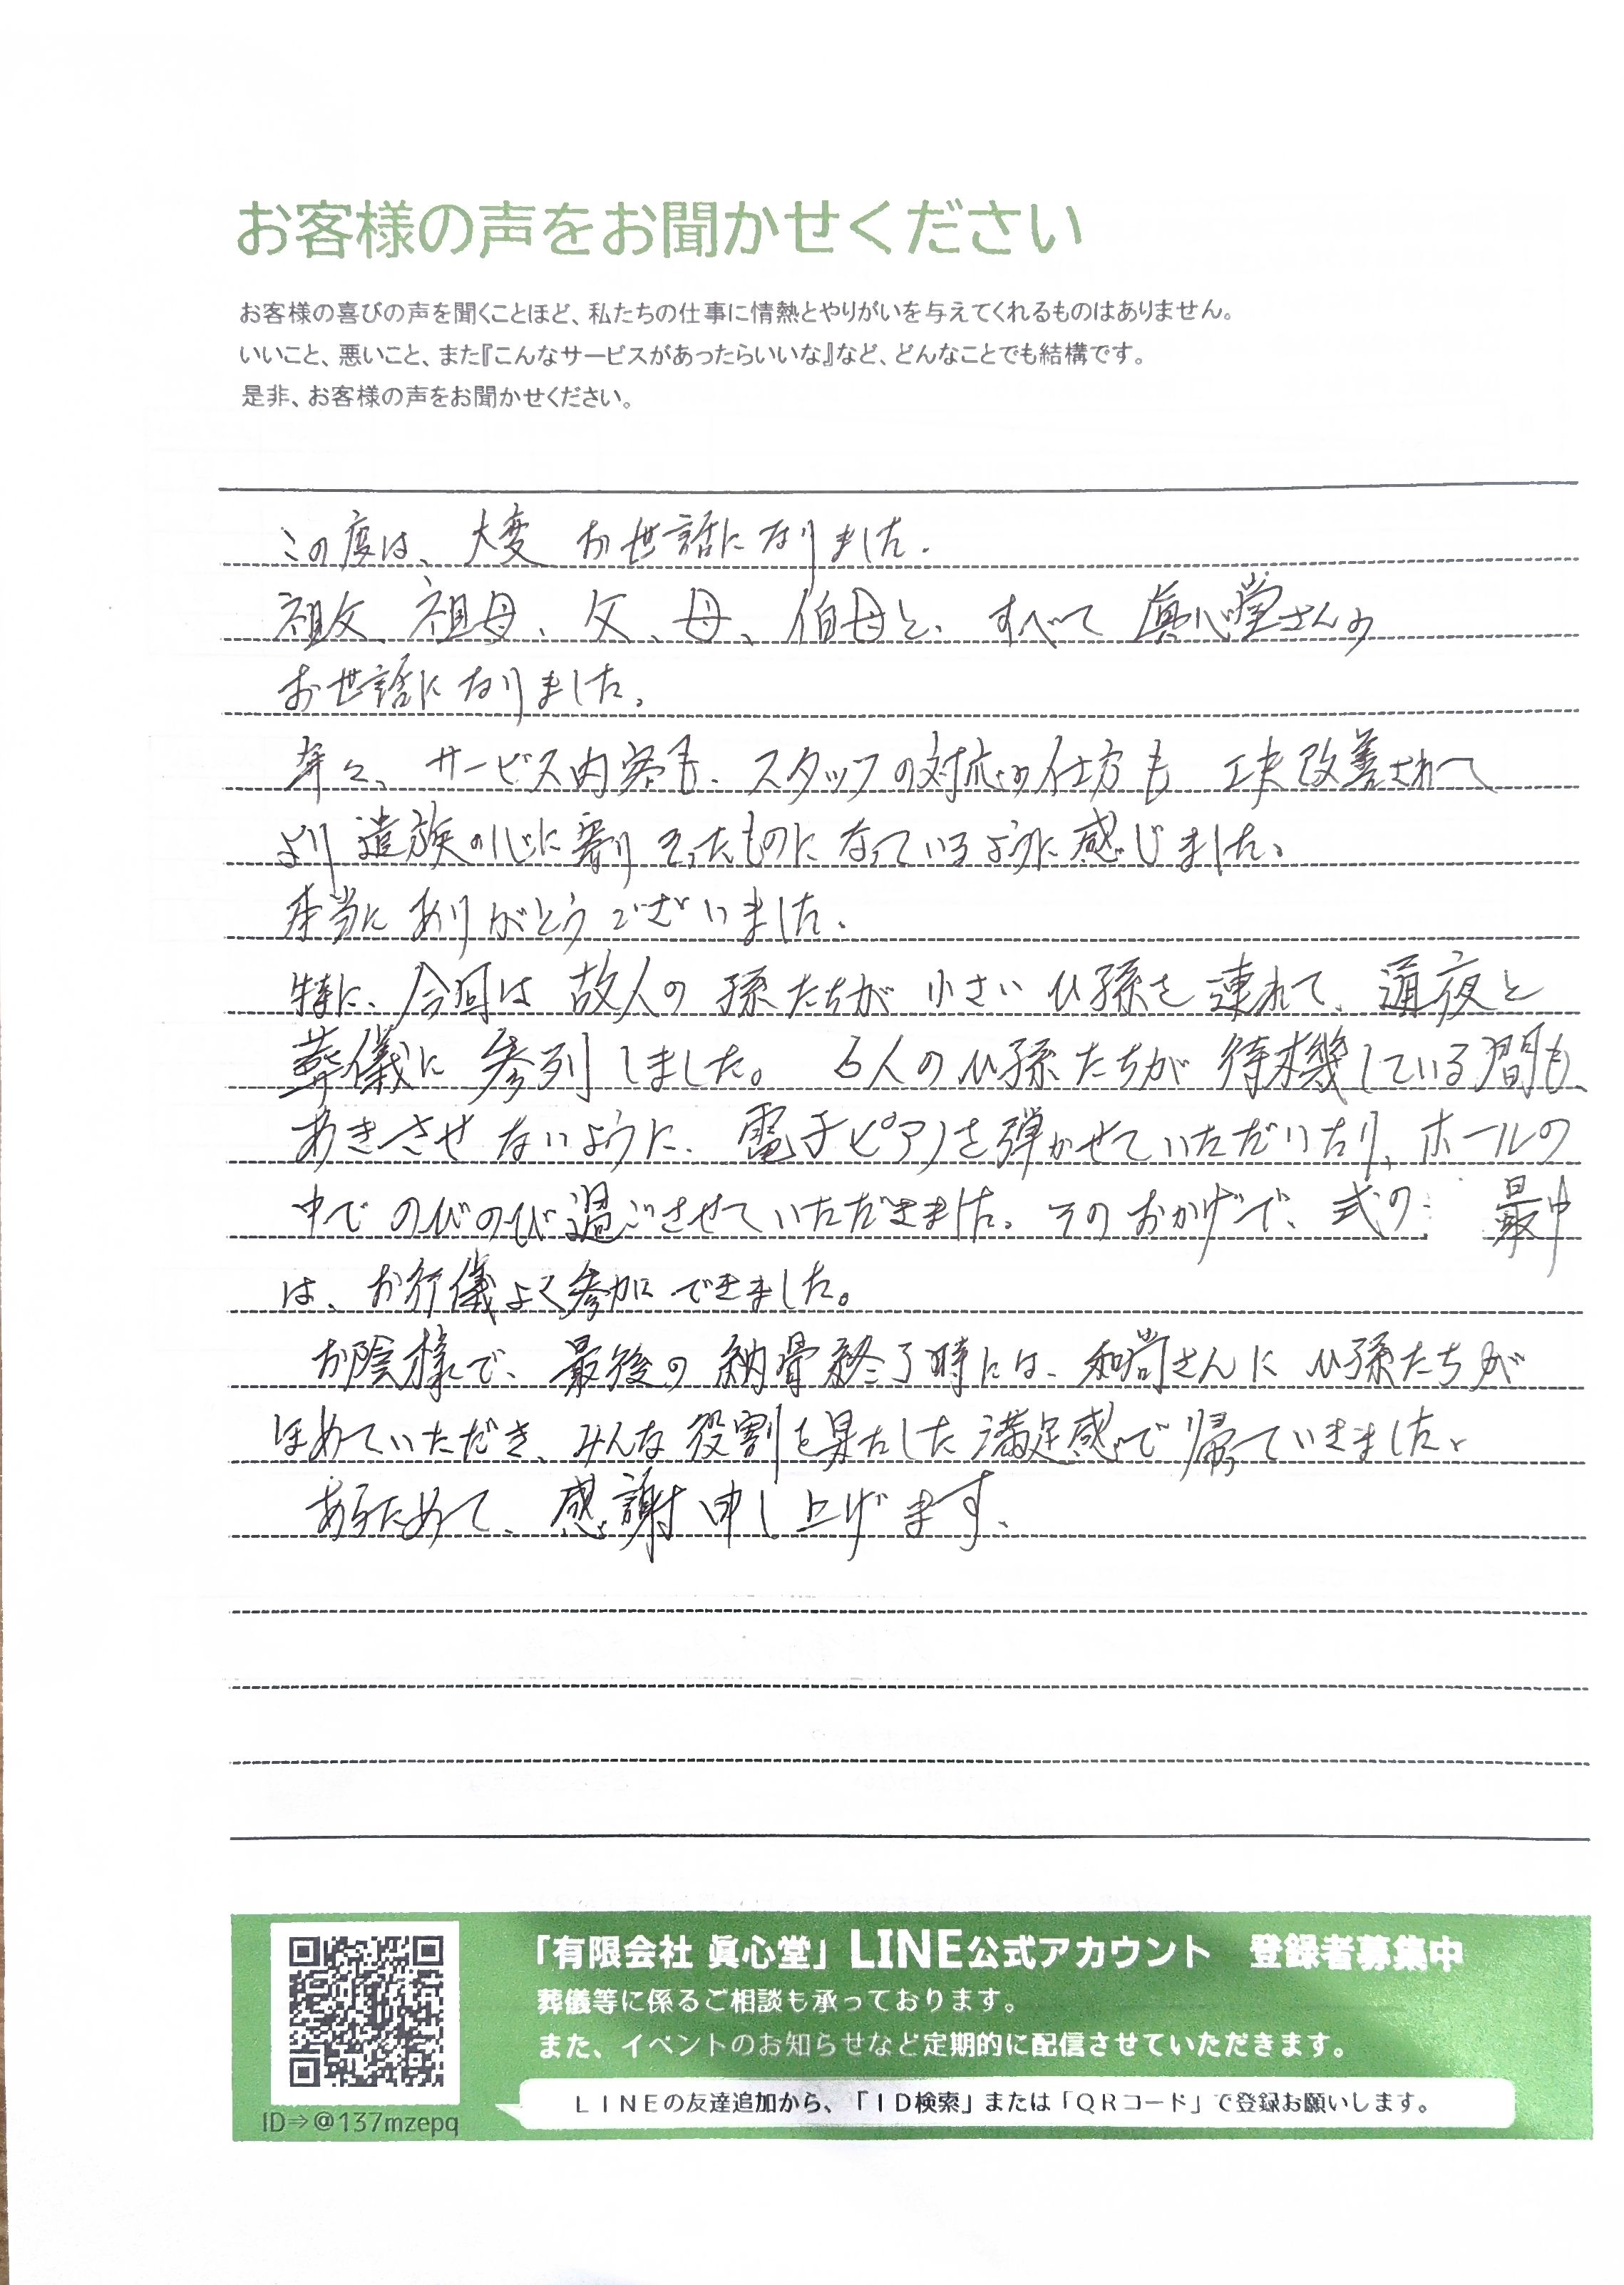 お客様の声をお聞かせください
お客様の喜びの声を聞くことほど、私たちの仕事に情熱とやりがいを与えてくれるものはありません。
いいこと、悪いこと、また『こんなサービスがあったらいいな』など、どんなことでも結構です。
是非、お客様の声をお聞かせください。
この度は、大変 お世話になりました。
祖父、祖母、父、母、伯母と、すべて 眞心堂さんの
お世話になりました。
年々、サービス内容も、スタッフの対応の仕方も 工夫改善されて
より遺族の心に寄りそったものになっているように感じました。
本当にありがとうございました。
特に、今回は 故人の 孫たちが 小さい ひ孫を 連れて、通夜と
葬儀に 参列しました。 6人のひ孫たちが 待機している間も、
あきさせないように、電子ピアノを弾かせていただいたり、ホールの
中で のびのび過ごさせていただきました。そのおかげで、式の 最中
は、お行儀よく参加できました。
お陰様で、最後の 納骨終了時には、和尚さんに ひ孫たちが
ほめていただき、みんな役割を果たした満足感で帰っていきました。
あらためて、感謝申し上げます。
「有限会社 眞心堂」LINE公式アカウント 登録者募集中
葬儀等に係るご相談も承っております。
また、イベントのお知らせなど定期的に配信させていただきます。
LINEの友達追加から、「ID検索」または「QRコード」で登録お願いします。
ID⇒@137mzepq